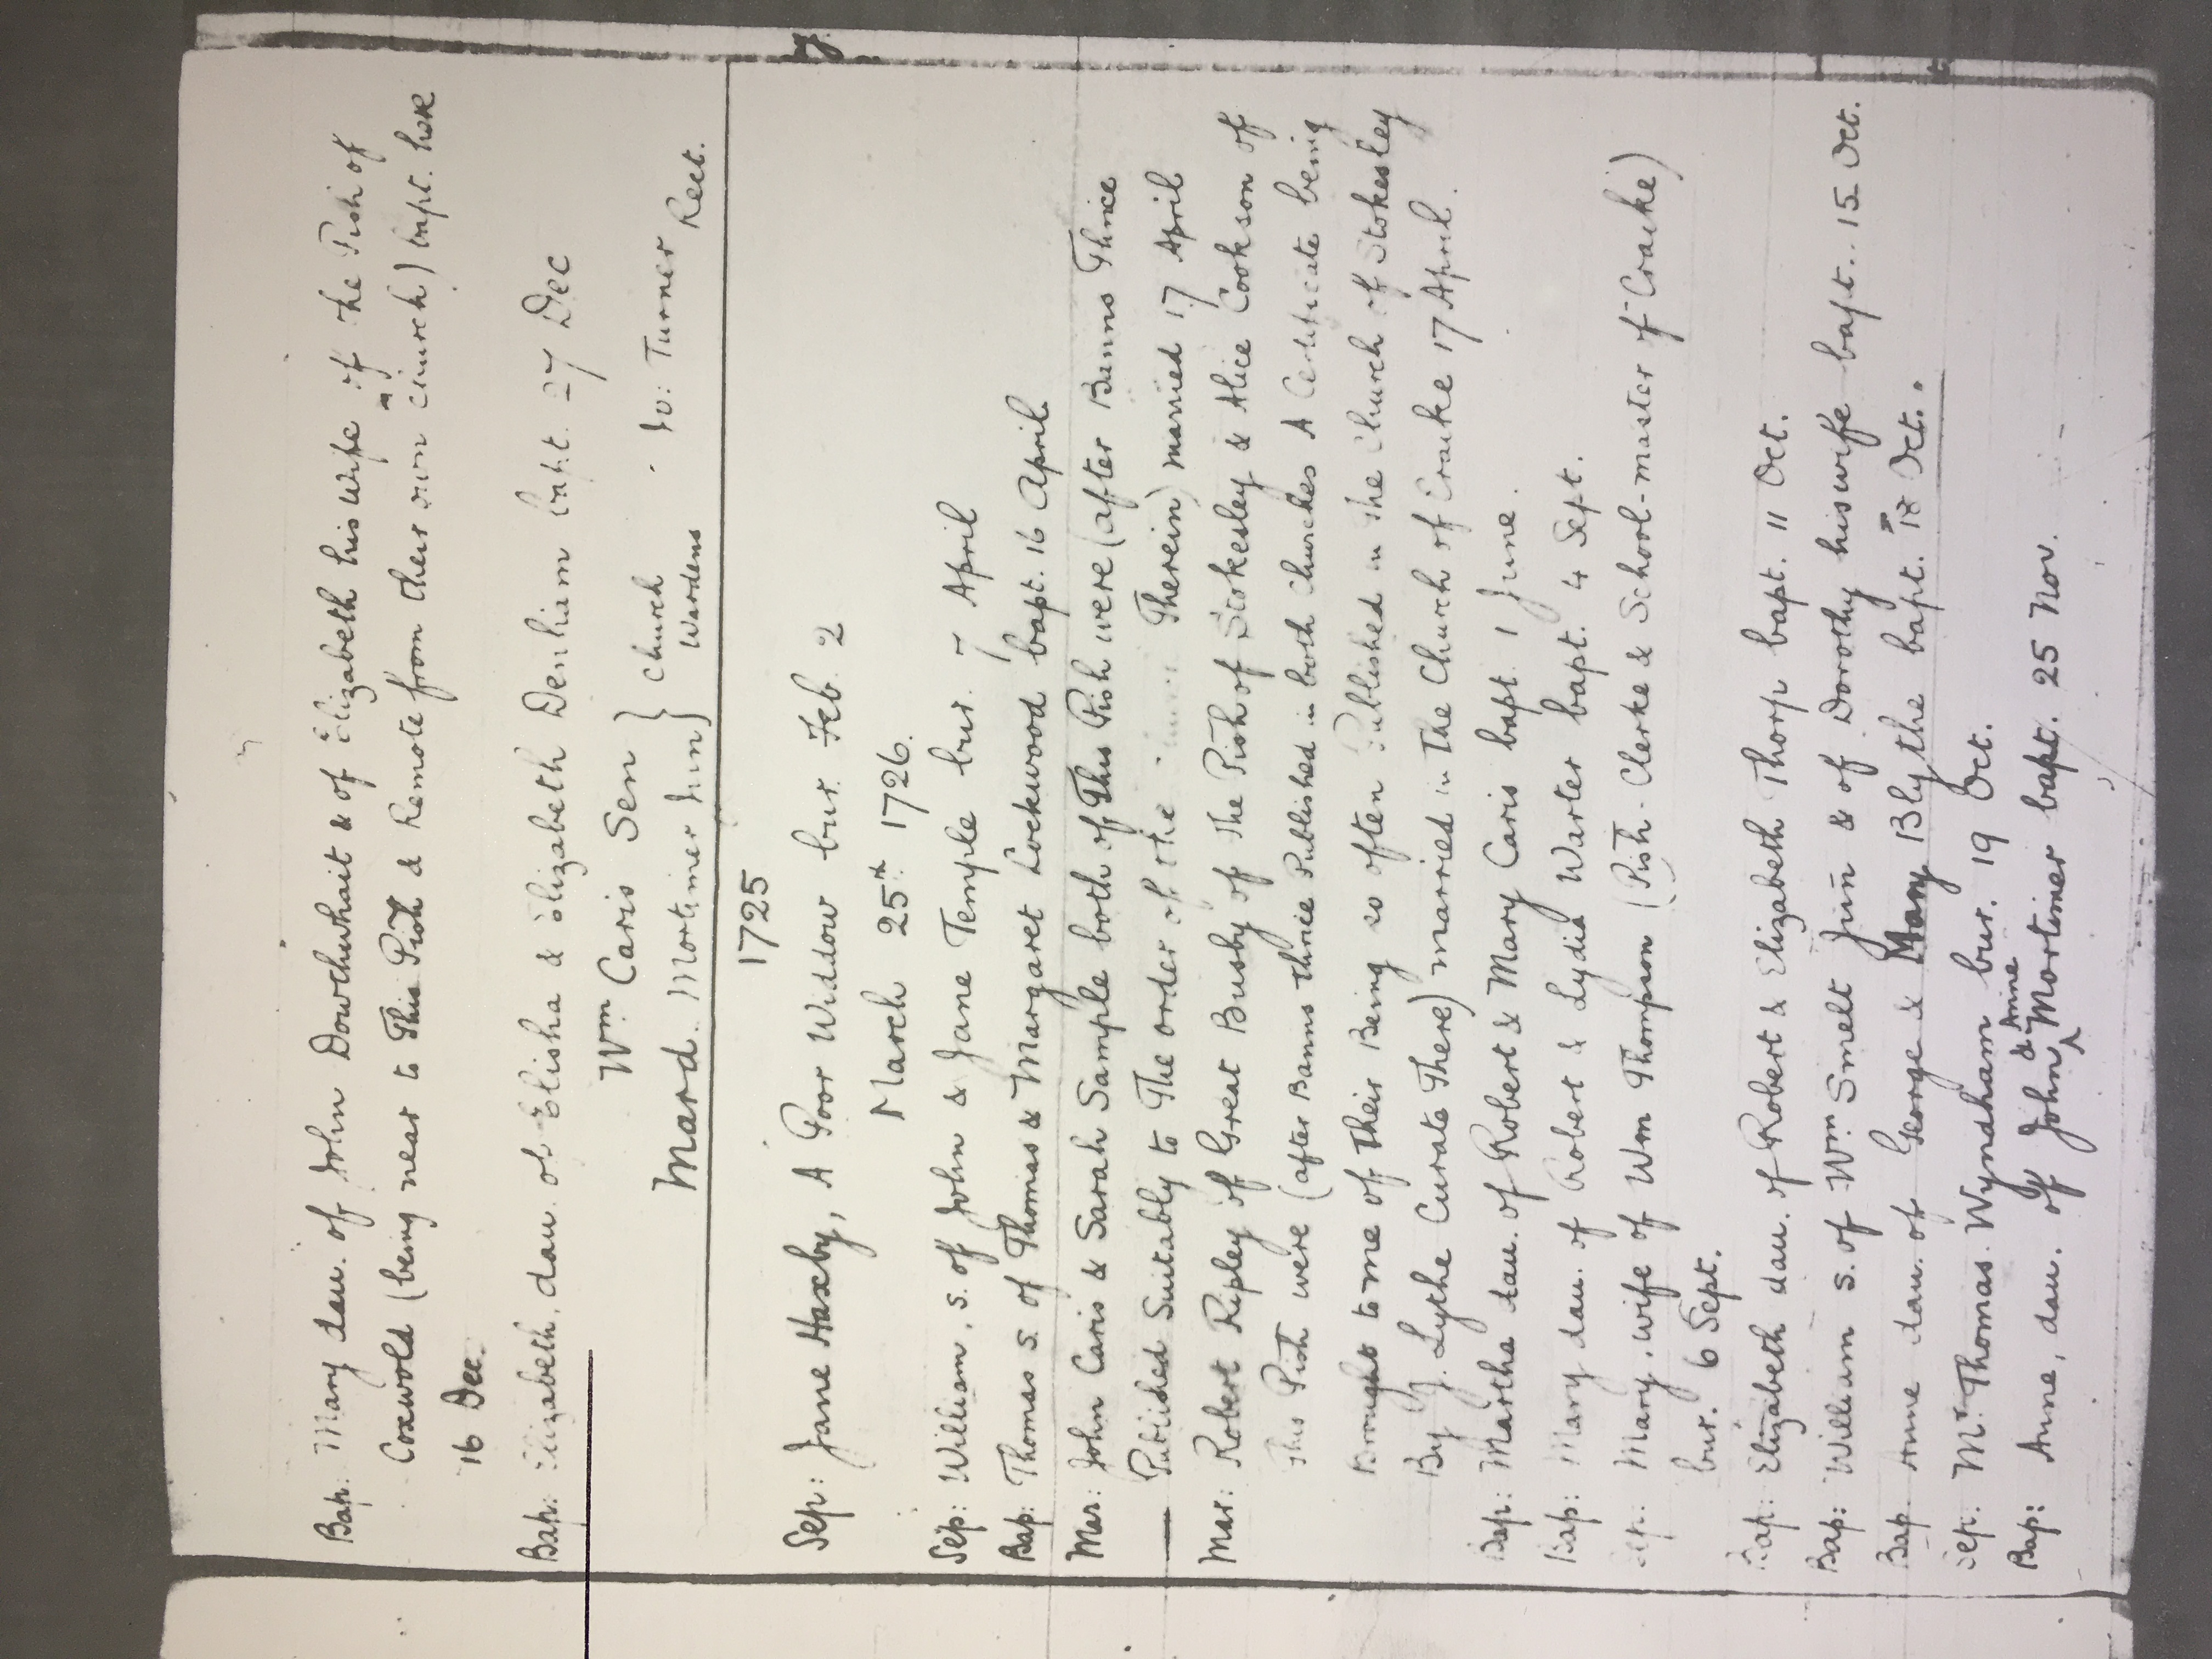 Bap: Mary dau. of John Dowthwait & of Elizabeth his wife of the Pish of
Coxwold (being near to This Pish & Remote from their own church) bapt. here
16 Dec.
Bap: Elizabeth, dau. of Elisha & Elizabeth Denham bapt. 27 Dec
Wm Caris Sen } Church
Mard. Mortimer Jun } Wardens
Jo: Turner Rect.
1725
Sep: Jane Haxby, A Poor Widdow bur. Feb. 2
March 25th 1726.
Sep: William, s. of John & Jane Temple bur. 7 April
Bap: Thomas s. of Thomas & Margaret Lockwood bapt. 16 April.
Mar: John Caris & Sarah Sample both of This Pish were (after Banns Thrice
Published Suitably to The order of the Therein) married 17 April
Mar: Robert Ripley of Great Busby of The Pish of Stokesley & Alice Cookson of
This Pish were (after Banns thrice Published in both churches A Certificate being
Brought to me of Their Being so often Published in The Church of Stokesley
By J. Lythe Curate There) married in The Church of Craike 17 April.
Bap: Martha dau. of Robert & Mary Caris bapt. 1 June.
Bap: Mary dau. of Robert & Lydia Warter bapt. 4 Sept.
Sep: Mary, wife of Wm Thompson (Pish-Clerke & School-master of Craike)
bur. 6 Sept.
Bap: Elizabeth dau. of Robert & Elizabeth Thorp bapt. 11 Oct.
Bap: William s. of Wm Smelt Jun & of Dorothy his wife bapt. 15 Oct.
Bap Anne dau. of George & Mary Blythe bapt. 18 Oct.
Sep: Mr Thomas Wyndham bur. 19 Oct.
Bap: Anne, dau. of John & Anne Mortimer bapt. 25 Nov.